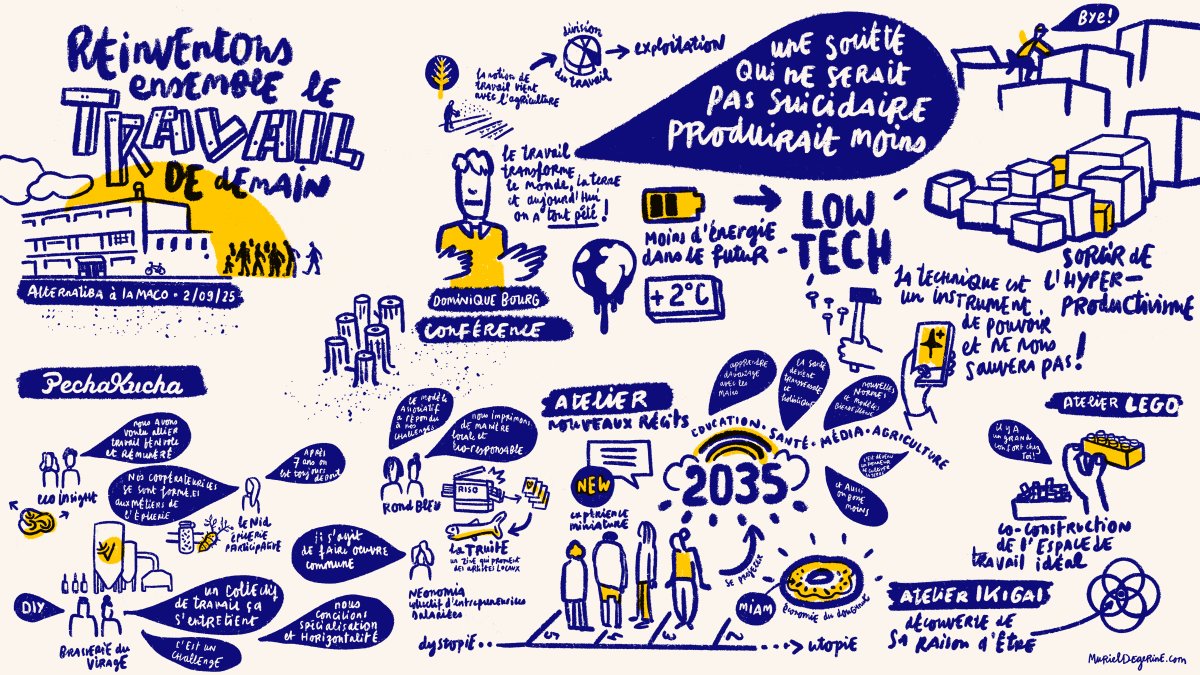 RÉINVENTONS
ENSEMBLE LE
TRAVAIL
DE DEMAIN
ALTERNATIBA à la MACO • 2/09/25
la notion de
travail vient
avec l'agriculture
division
du travail
exploitation
UNE SOCIÉTÉ
QUI NE SERAIT
PAS SUICIDAIRE
PRODUIRAIT MOINS
Bye!
le travail
transforme
le monde, la terre
et aujourd'hui
on a tout pété!
DOMINIQUE BOURG
CONFÉRENCE
MOINS D'ÉNERGIE
DANS LE FUTUR
+2°C
LOW
TECH
SORTIR DE
L'HYPER-
PRODUCTIVISME
LA TECHNIQUE EST
UN INSTRUMENT
DE POUVOIR
ET NE NOUS
SAUVERA PAS!
PechaKucha
nous avons
voulu allier
travail bénévole
et rémunéré
eco insight
Nos coopérateurices
se sont formé.es
aux métiers de
l'épicerie
APRÈS
7 ans on
est toujours
debout
le Nid
ÉPICERIE
PARTICIPATIVE
DIY
BRASSERIE DU
VIRAGE
un collectif
de travail ça
s'entretient
C'EST UN
CHALLENGE
il s'agit
de faire oeuvre
commune
nous
concilions
spécialisation
et horizontalité
NÉONOMIA
collectif d'entrepreneurices
salariées
LE MODÈLE
ASSOCIATIF
A RÉPONDU
À NOS
CHALLENGES
nous imprimons
de manière
locale et
éco-responsable
ROND BLEU
RISO
la TRUITE
un zine qui promeut
des artistes locaux
ATELIER
NOUVEAUX RÉCITS
NEW
expérience
miniature
apprendre
davantage
avec les
mains
LA SANTÉ
DEVIENT
TRANSVERSALE
ET
HOLISTIQUE
NOUVELLES
NORMES
ET MODÈLES
ÉDUCATION • SANTÉ • MÉDIA • AGRICULTURE
2035
et Aussi
on bosse
moins
SE PROJETER
MIAM
économie du doughnut
dystopie
utopie
ATELIER LEGO
il y a
un grand
confort chez
Toi!
CO-CONSTRUCTION
DE L'ESPACE DE
TRAVAIL IDÉAL
ATELIER IKIGAI
DÉCOUVERTE DE
SA RAISON D'ÊTRE
MurielDegerine.com